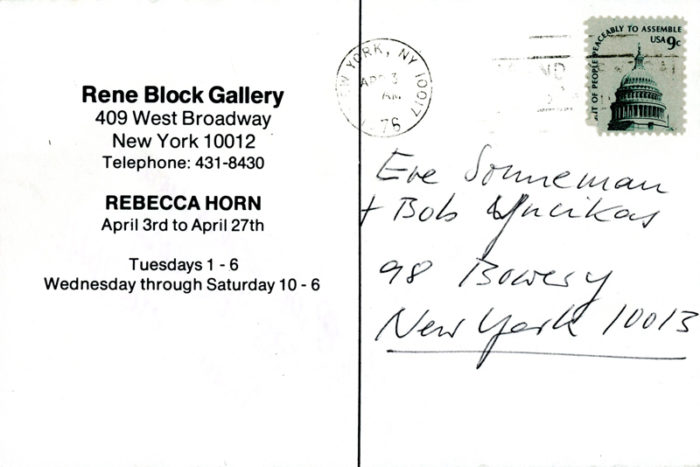 Rene Block Gallery
409 West Broadway
New York 10012
Telephone: 431-8430
REBECCA HORN
April 3rd to April 27th
Tuesdays 1 - 6
Wednesday through Saturday 10 - 6
NEW YORK, NY 10017
APR 3
AM
76
PEACEABLY TO ASSEMBLE
USA 9c
OF PEOPLE
Eve Sonneman
+ Bob
98 Bowery
New York 10013